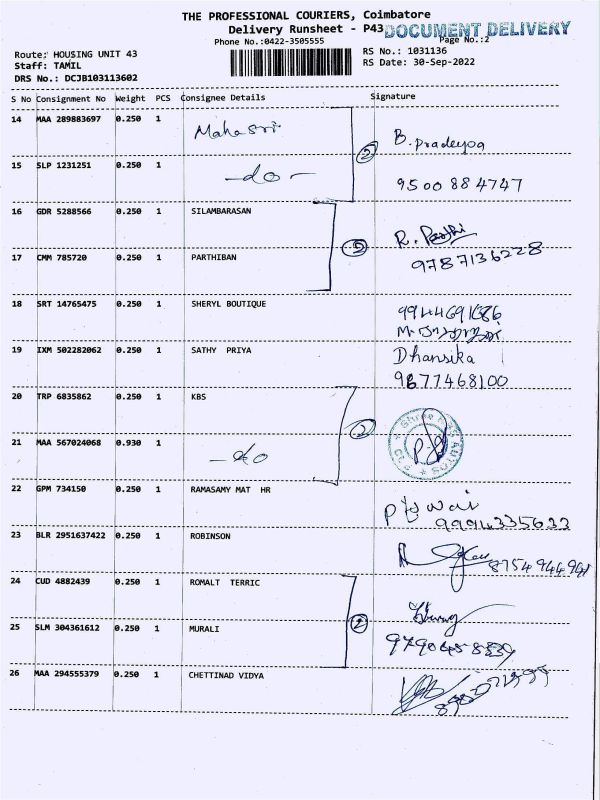 THE PROFESSIONAL COURIERS, Coimbatore
Delivery Runsheet - P43 DOCUMENT DELIVERY
Phone No.:0422-3505555 Page No.:2
Route: HOUSING UNIT 43 RS No.: 1031136
Staff: TAMIL RS Date: 30-Sep-2022
DRS No.: DCJB103113602
S No Consignment No Weight PCS Consignee Details Signature
14 MAA 289883697 0.250 1 Mahasri B. Pradeypa
② 
15 SLP 1231251 0.250 1 -do- 9500884747
16 GDR 5288566 0.250 1 SILAMBARASAN R.
17 CMM 785720 0.250 1 PARTHIBAN 9787136228
18 SRT 14765475 0.250 1 SHERYL BOUTIQUE 9944691686
19 IXM 502282062 0.250 1 SATHY PRIYA Dhansika
9677468100
20 TRP 6835862 0.250 1 KBS
②
21 MAA 567024068 0.930 1 -do
22 GPM 734150 0.250 1 RAMASAMY MAT HR
9994335633
23 BLR 2951637422 0.250 1 ROBINSON 8754944941
24 CUD 4882439 0.250 1 ROMALT TERRIC
②
25 SLM 304361612 0.250 1 MURALI
26 MAA 294555379 0.250 1 CHETTINAD VIDYA